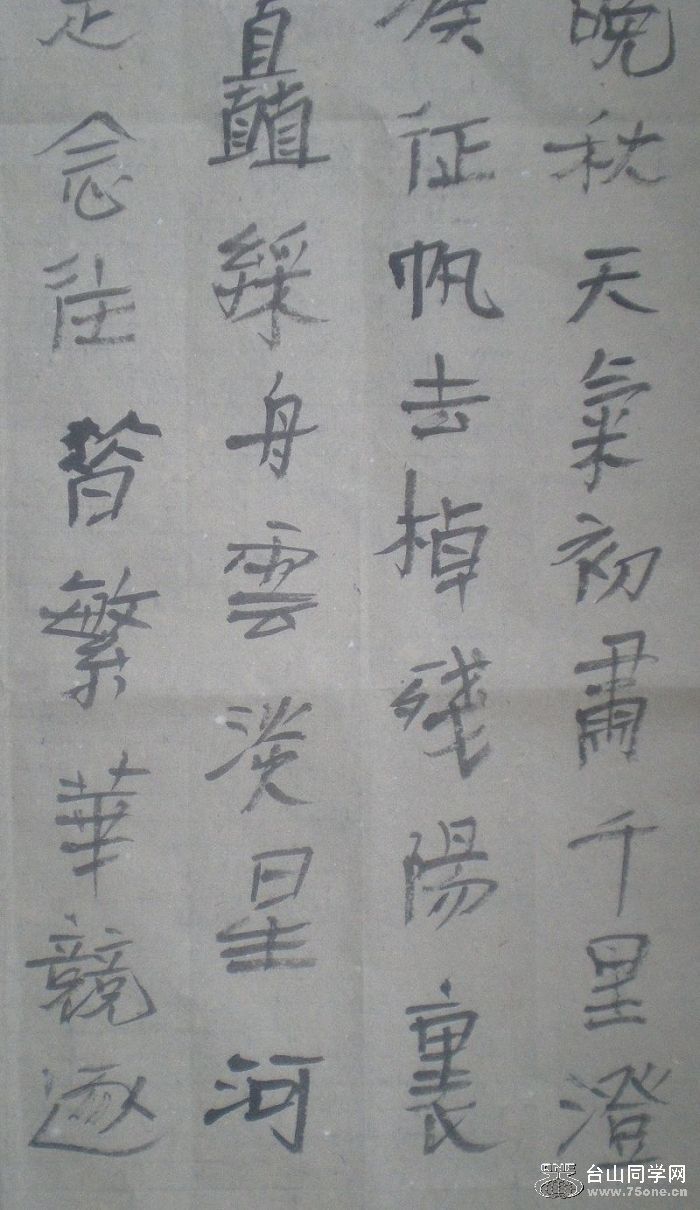 晚秋天氣初肅千里澄
征帆去棹殘陽裏
矗綵舟雲淡星河
念往昔繁華競逐
台山同学网
www.75one.cn